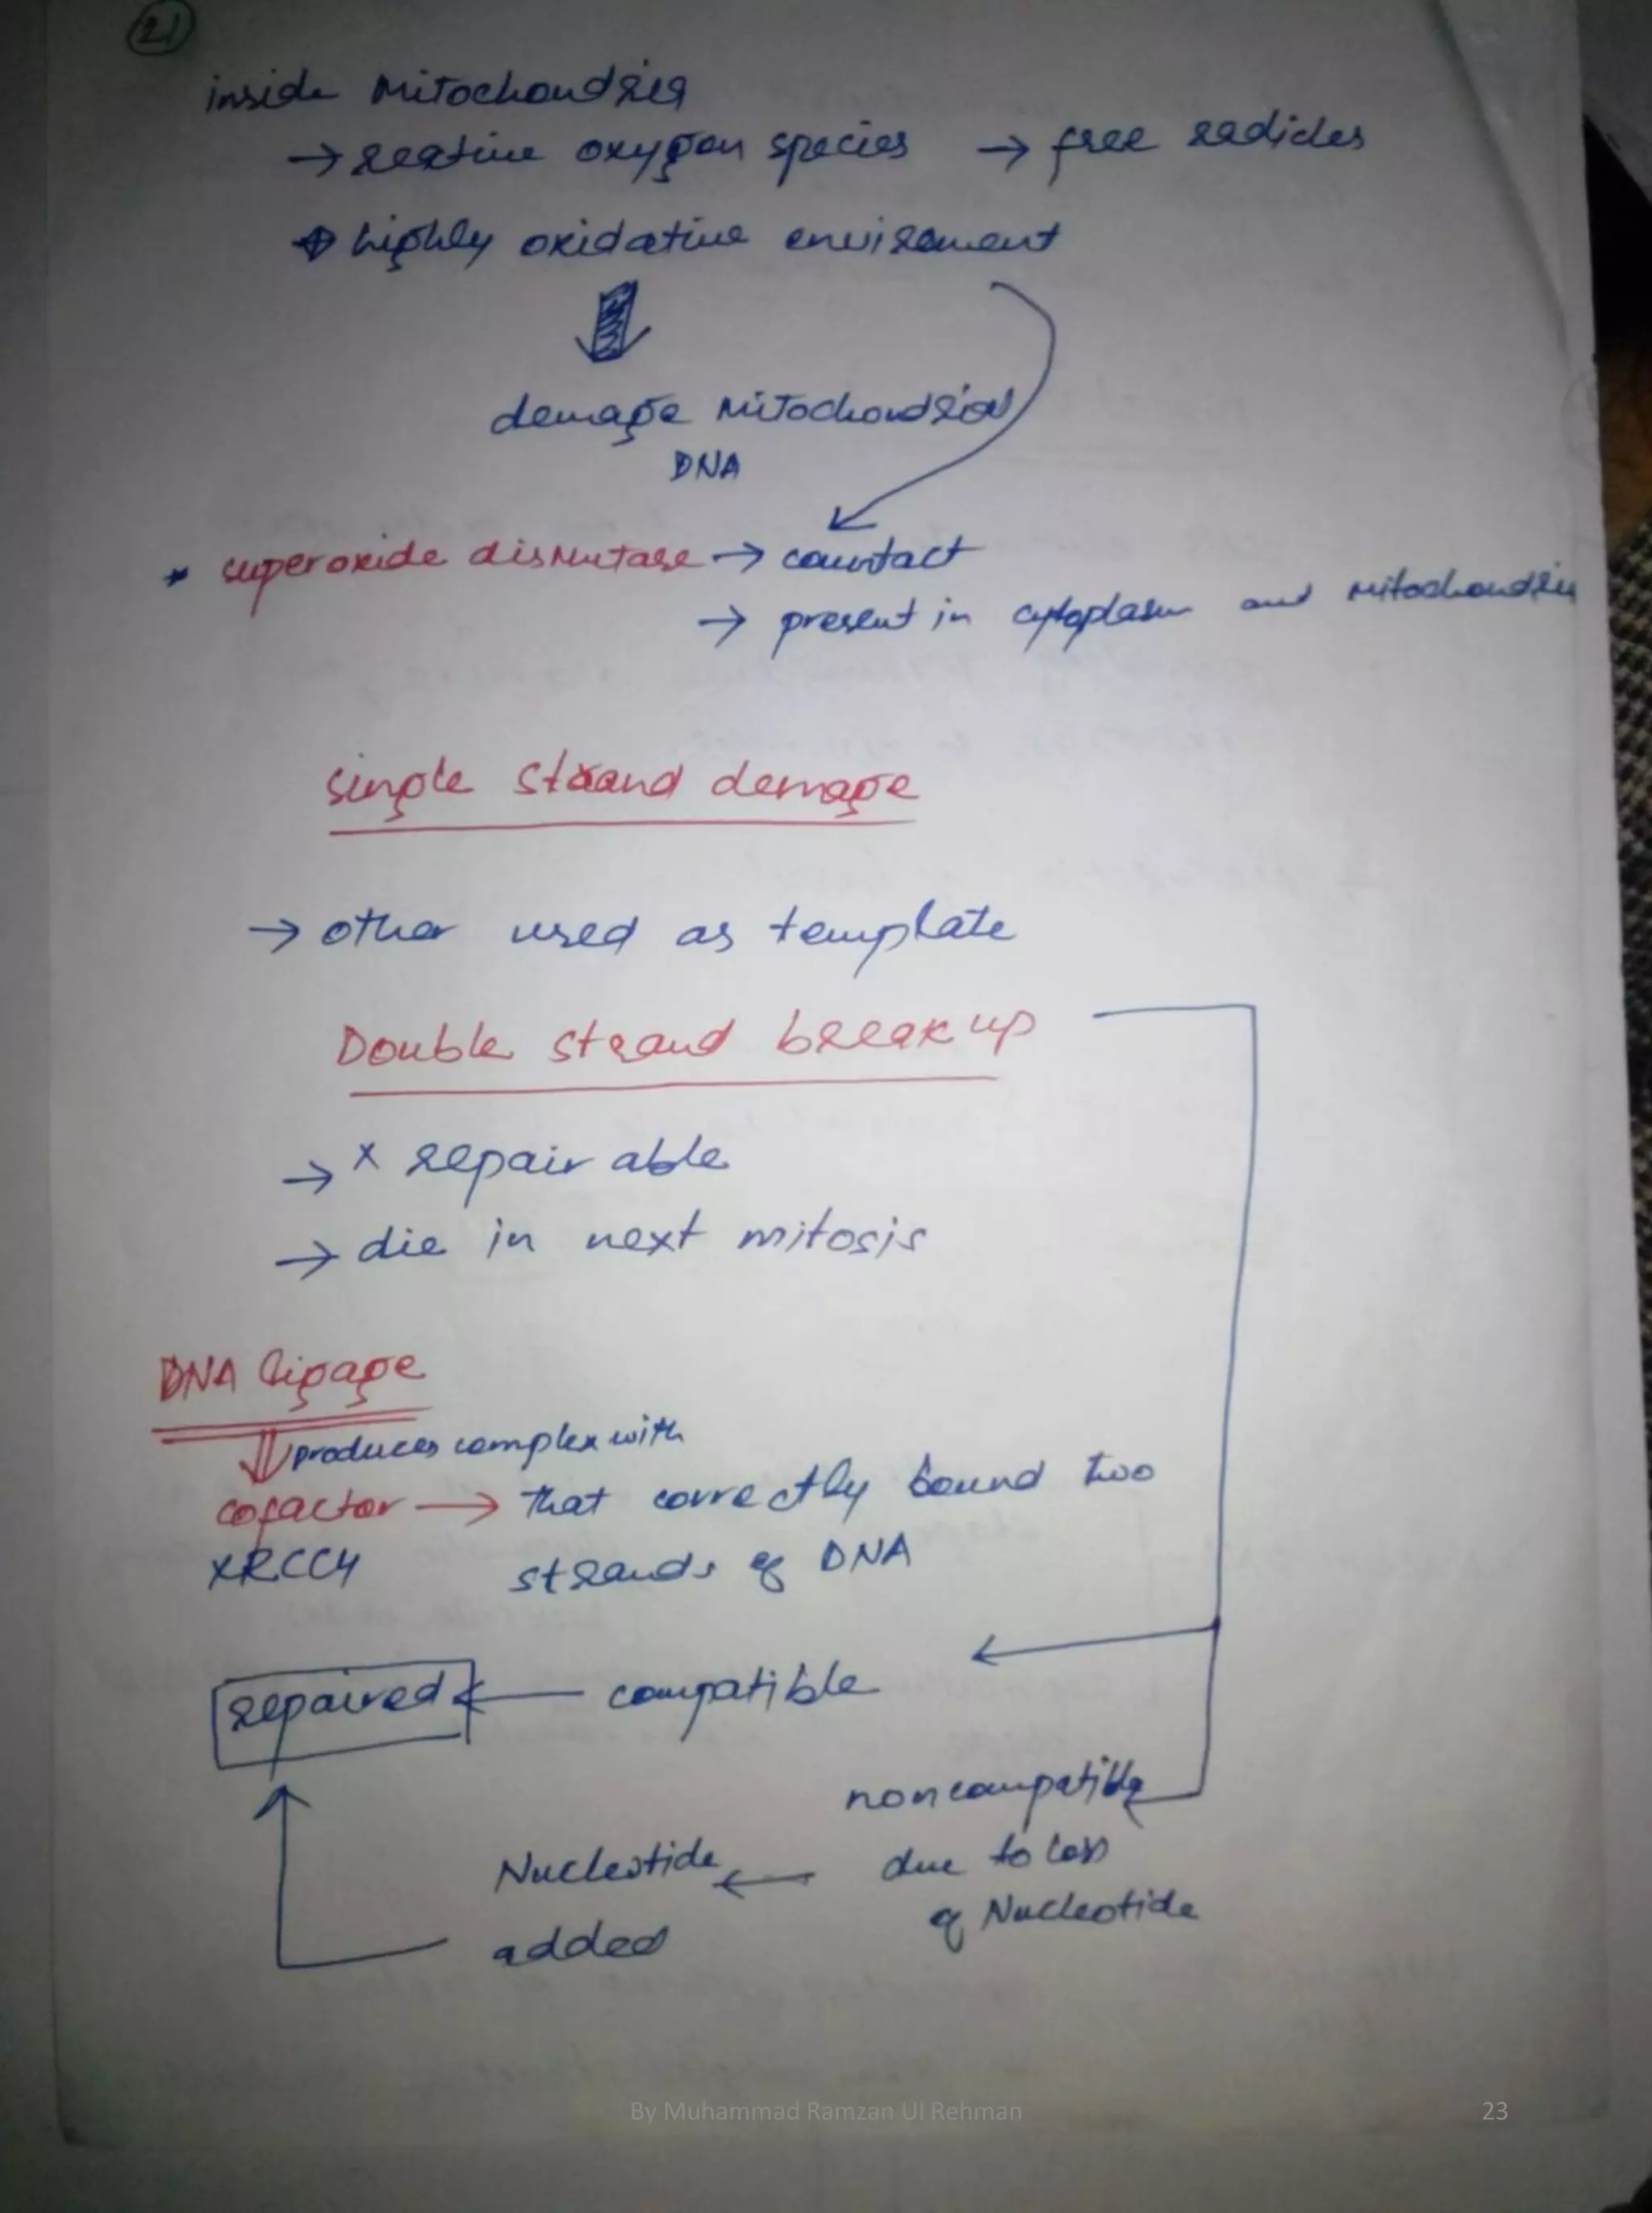 21
inside mitochondria
→ reative oxygen species → free radicles
highly oxidative enviroment
demage mitochondrion
DNA
* superoxide dismutase → countact
→ present in cytoplasm and mitochondria
single strand demage
→ other used as template
Double strand breakup
→ x repair able
→ die in next mitosis
DNA ligage
produces complex with
cofactor → that correctly bound two
XRCC4 strands of DNA
repaired ← compatible
noncompatible
due to loss
of Nucleotide
Nucleotide ←
added
By Muhammad Ramzan Ul Rehman 23